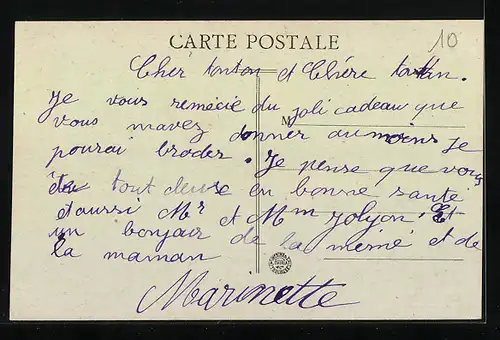 CARTE POSTALE
10
Cher tonton et Chére tantan.
Je vous remécie du joli cadeau que
M
vous mavez donner au moins je
pourai broder. Je pense que vous
éte tout deuse en bonne santé
et aussi Mr et Mm Jolyon. Et
un bonjair de la mémé et de
la maman
Marinette